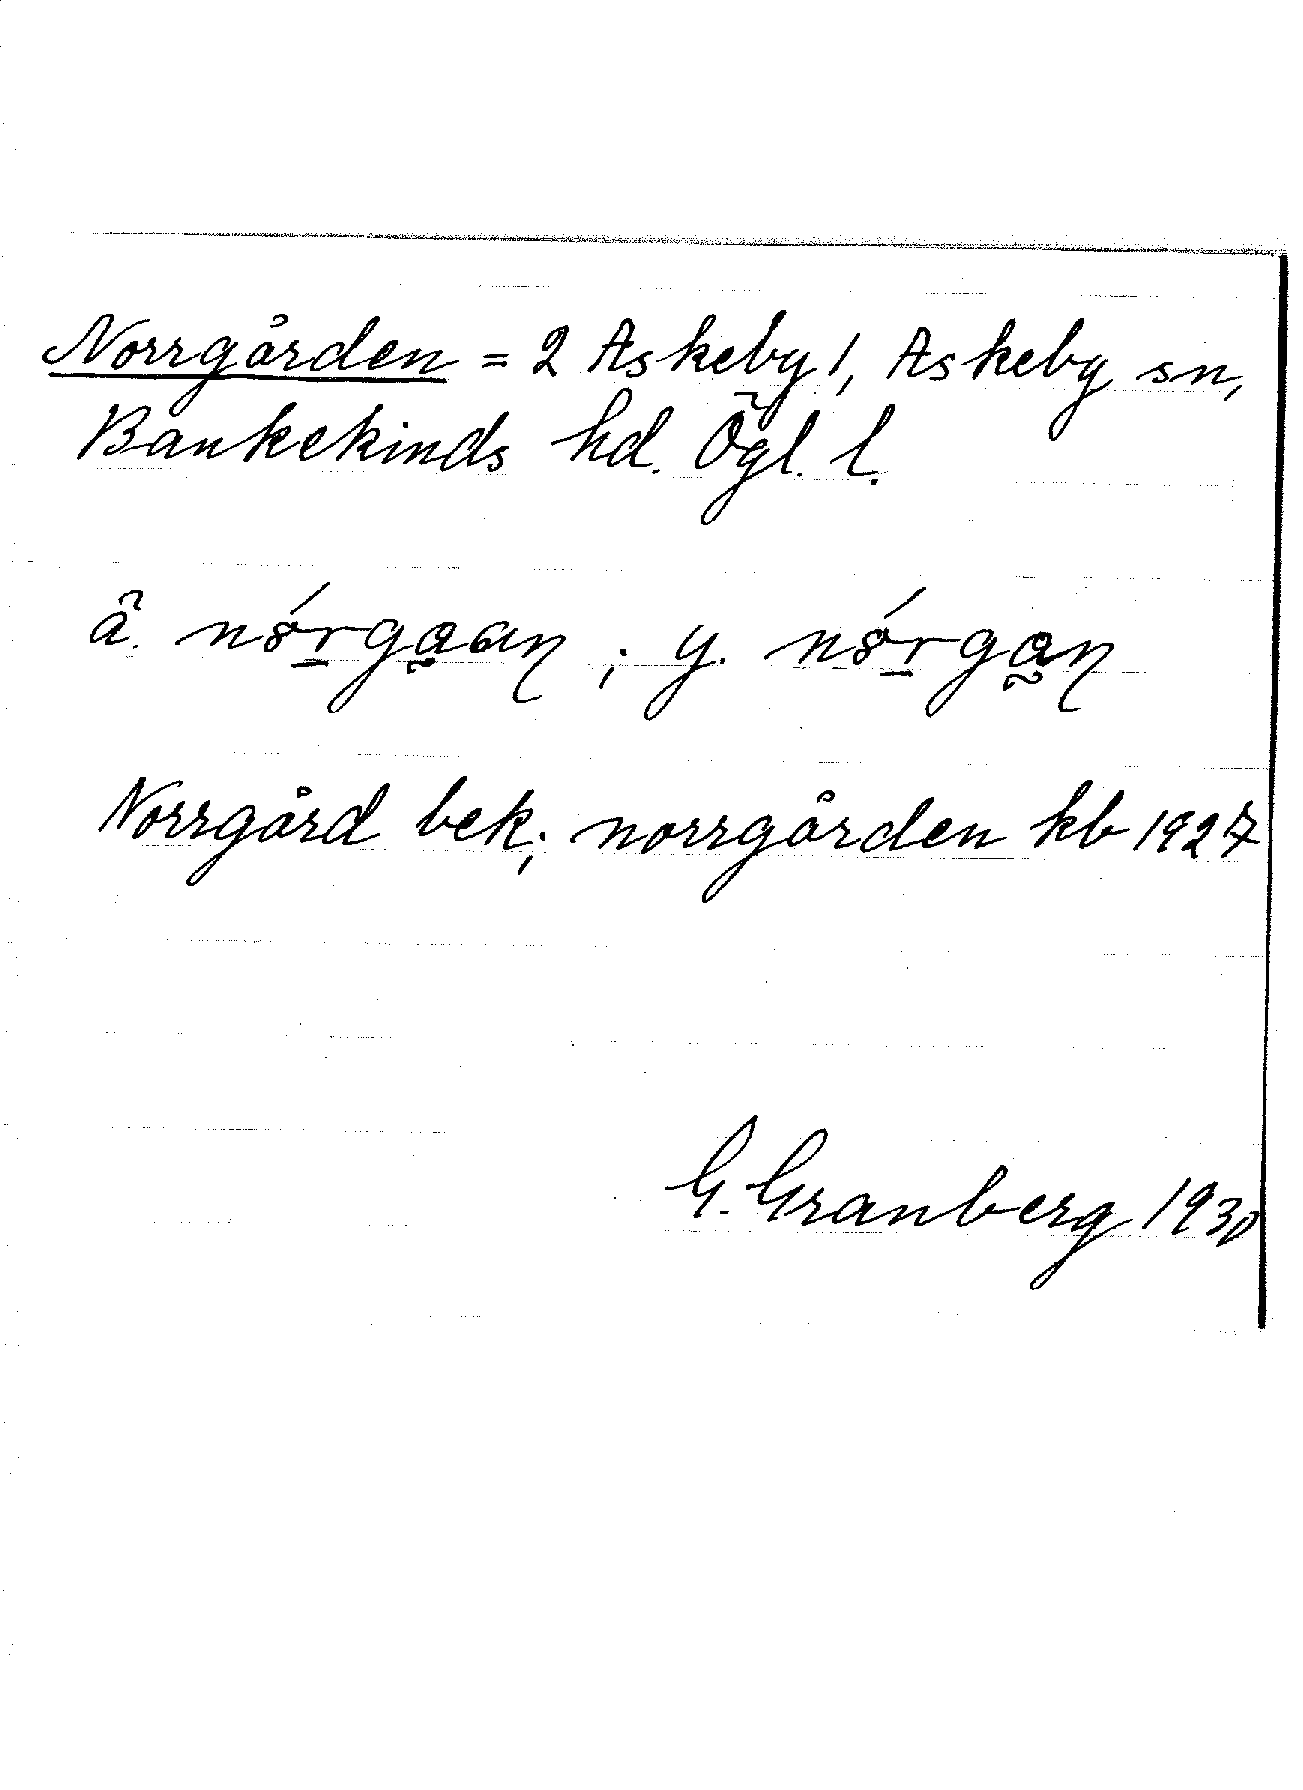 Norrgården = 2 Askeby 1, Askeby sn,
Bankekinds hd. Ögl. l.
ä. ; y.
Norrgård bek; norrgården kb 1927
G. Granberg 1930